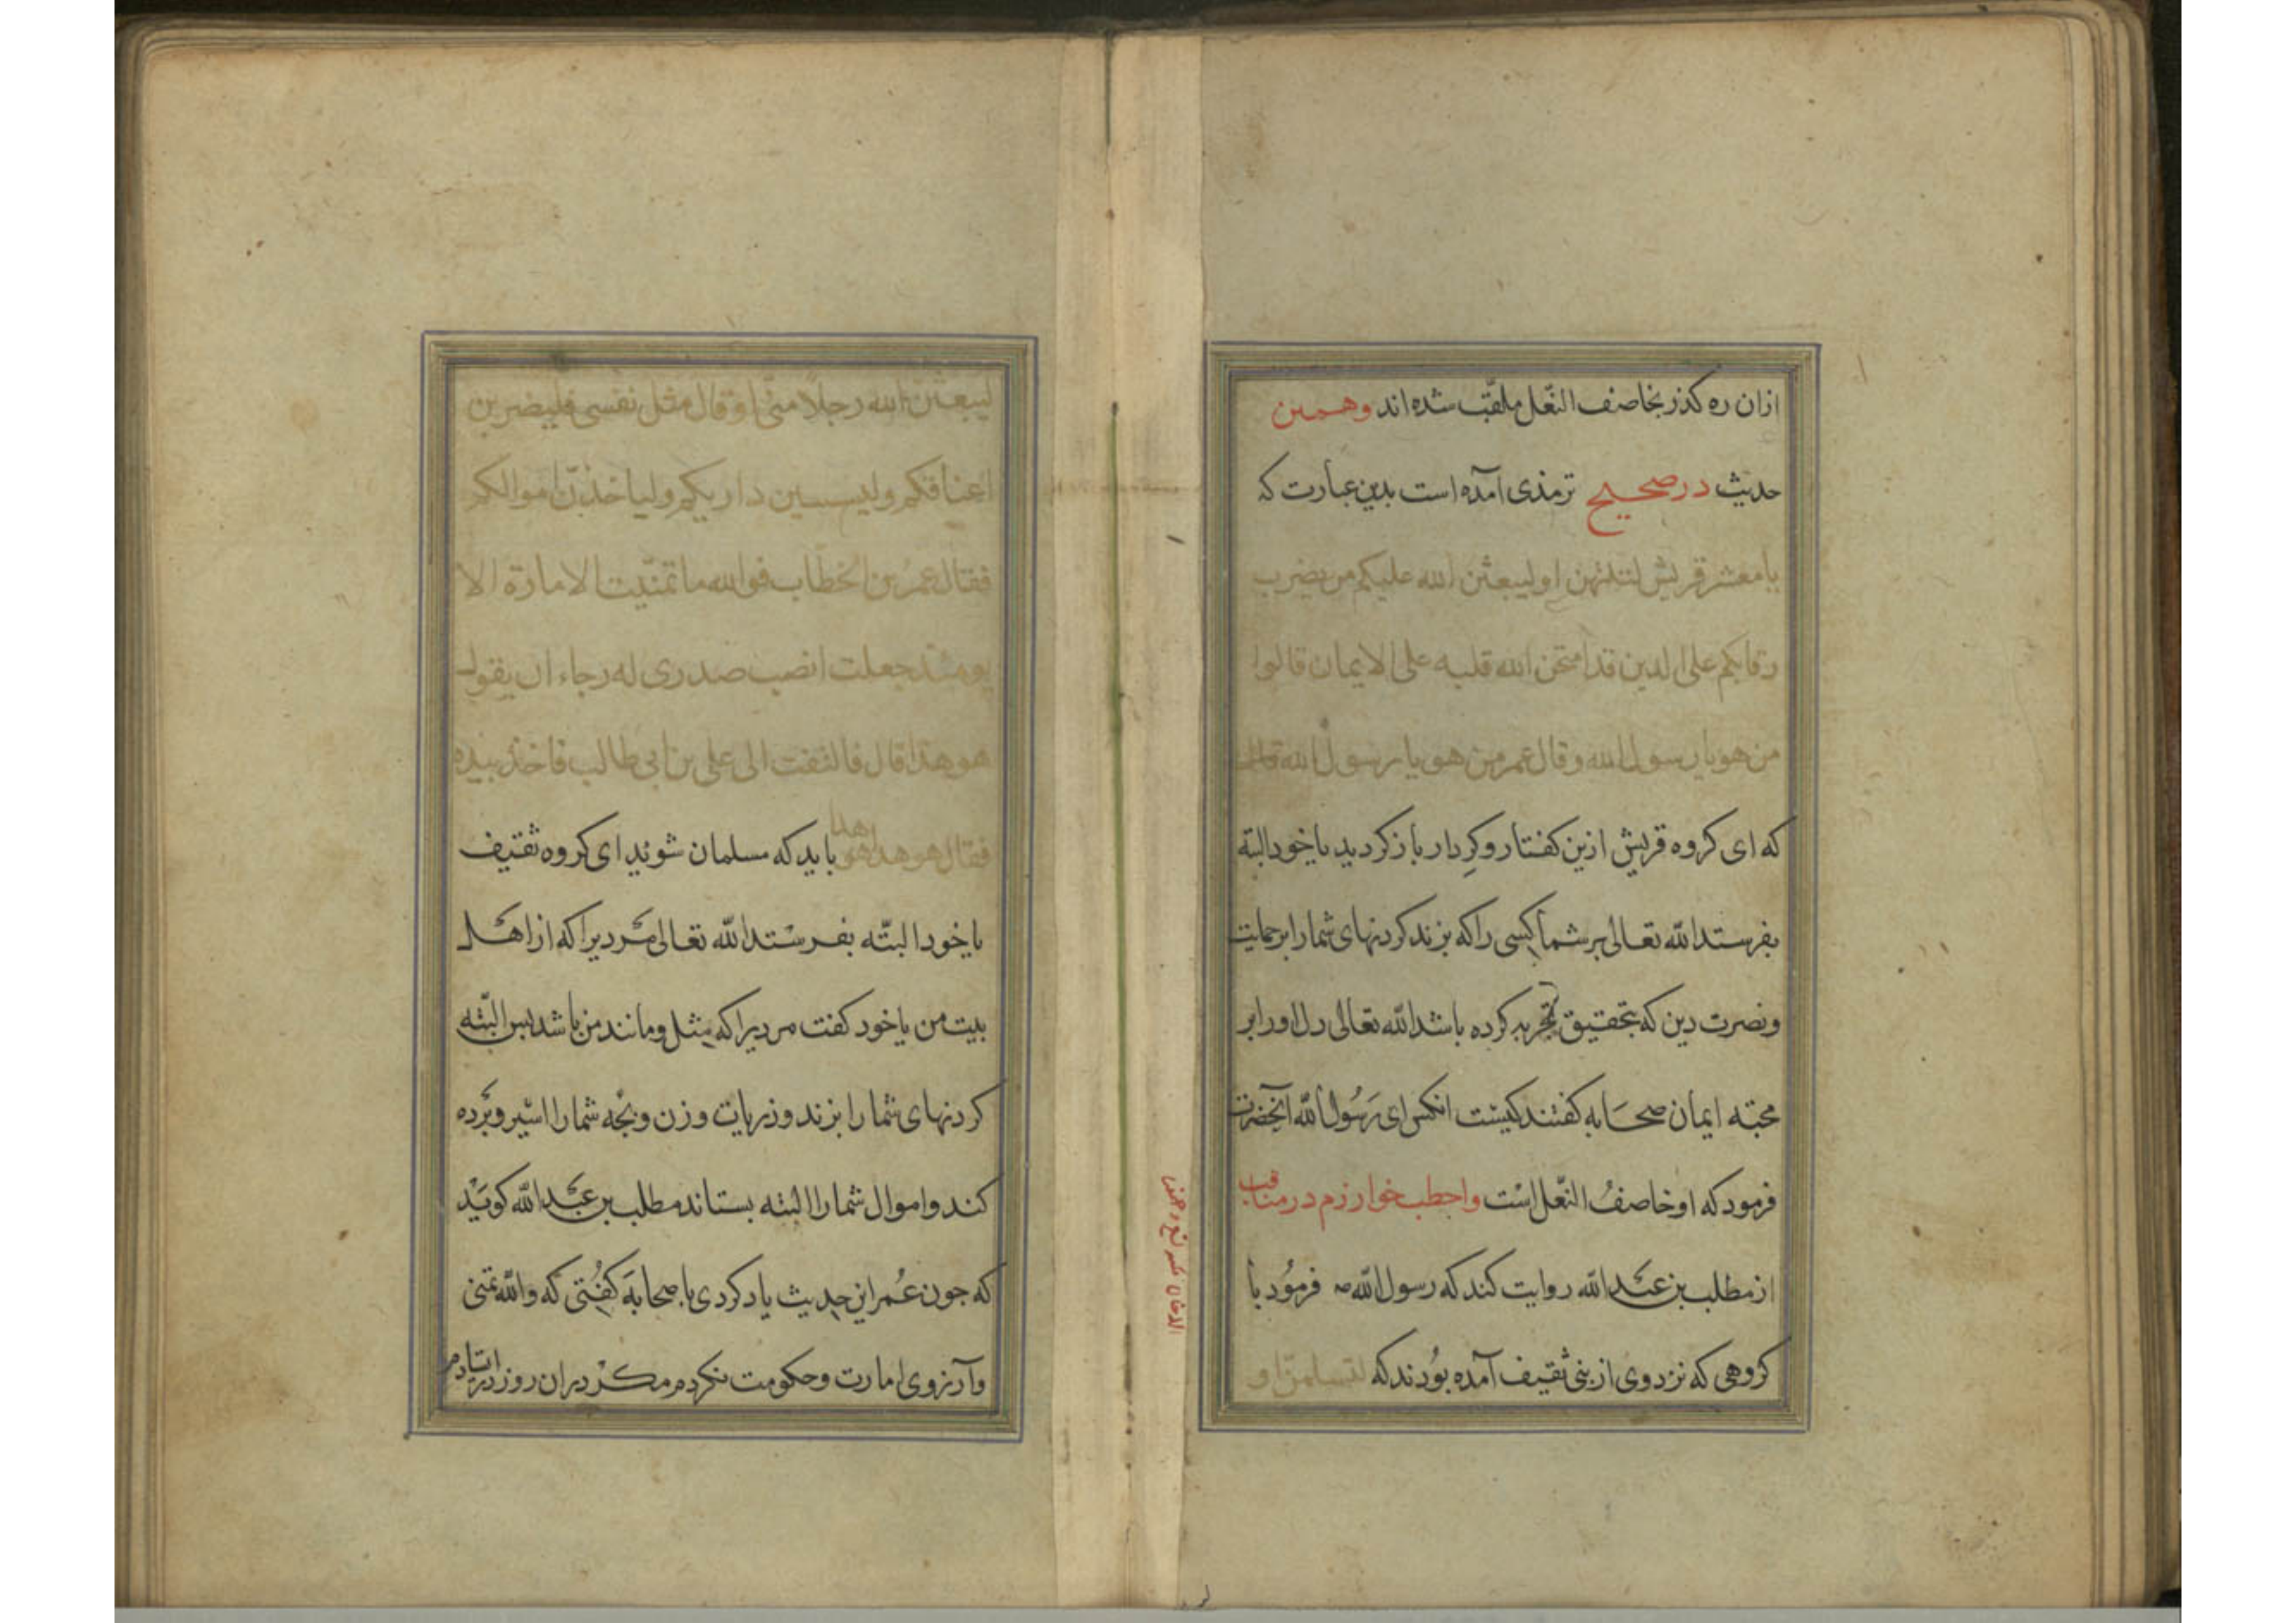 ازان ره کذر بخاصف النّعل ملقّب شده اند وهمین
حدیث در صحیح ترمذی آمده است بدین عبارت که
یا معشر قریش لتنتهن او لیبعثن الله علیکم من یضرب
رقابکم علی الدین قد امتحن الله قلبه علی الایمان قالوا
من هو یا رسول الله وقال عمر من هو یا رسول الله قال
که ای کروه قریش ازین کفتار و کردار باز کردید یا خود البته
بفرستد الله تعالی بر شما کسی را که بزند کردنهای شما را بر حمایت
ونصرت دین که بتحقیق تجربه کرده باشد الله تعالی دل او را بر
محبته ایمان صحابه کفتند کیست انکس ای رسول الله آنحضرت
فرمود که او خاصفُ النّعل است واحطب خوارزم در مناقب
از مطلب بن عبد الله روایت کند که رسول الله ص فرمُود با
کروهی که نزد وی از بنی ثقیف آمده بُودند که لتسلمنّ او
لیبعثن الله رجلًا منّی او قال مثل نفسی فلیضربن
اعناقکم ولیسبین ذراریکم ولیاخذنّ اموالکم
فقال عمر بن الخطاب فوالله ما تمنّیت الامارة الا
یومئذ جعلت انصب صدری له رجاء ان یقول
هو هذا قال فالتفت الی علی بن ابی طالب فاخذ بیده
فقال هو هذا هو هذا باید که مسلمان شوید ای کروه ثقیف
یا خود البتّه بفرستد الله تعالی مردیرا که از اهل
بیت من یا خود کفت مردیرا که مثل ومانند من باشد پس البتّه
کردنهای شما را بزند وذریات وزن وبچه شما را اسیر وبرده
کند واموال شما را البته بستاند مطلب بن عبد الله کوید
که جون عُمر این حدیث یاد کردی با صحابه کفتی که والله تمنی
وآرزوی امارت وحکومت نکردم مکر دران روز